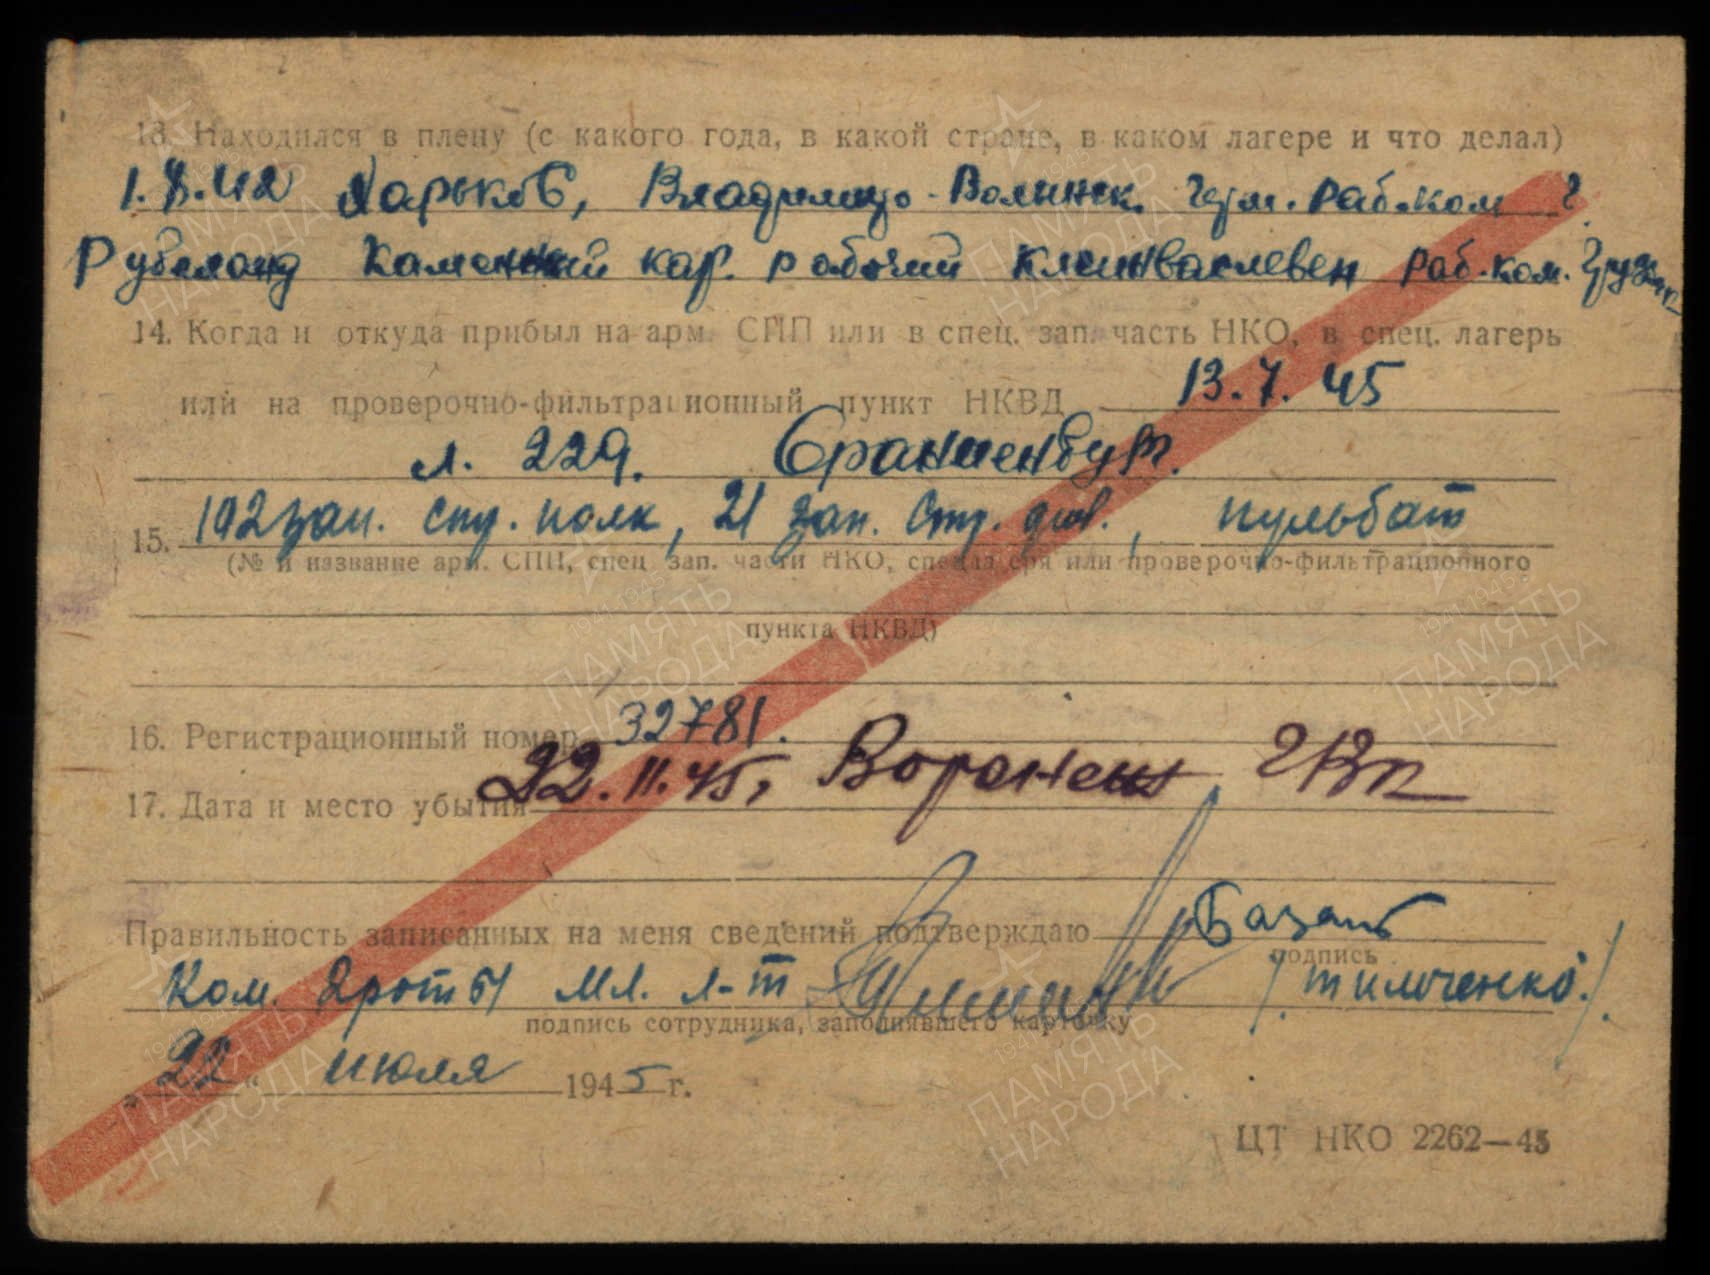 13. Находился в плену (с какого года, в какой стране, в каком лагере и что делал)
Харьков, Владимир-Волынск. герм. раб.ком г.
Рубеланд Каменный кар. рабочий раб.ком.
14. Когда и откуда прибыл на арм. СПП или в спец. зап. часть НКО, в спец. лагерь
или на проверочно-фильтрационный пункт НКВД 13.7.45
л. 229. Ораниенбург.
15. 192 зап. стр. полк, 21 зап. стр. див., пульбат
(№ и название арм. СПП, спец. зап. части НКО, спецлагеря или проверочно-фильтрационного
пункта НКВД)
16. Регистрационный номер 32781.
17. Дата и место убытия 22.11.45, Воронеж
Правильность записанных на меня сведений подтверждаю
подпись
Ком. 2 роты мл. л-т /Тимченко./
подпись сотрудника, заполнявшего карточку
„22“ июля 1945 г.
ЦТ НКО 2262—45
1941-1945
ПАМЯТЬ
НАРОДА